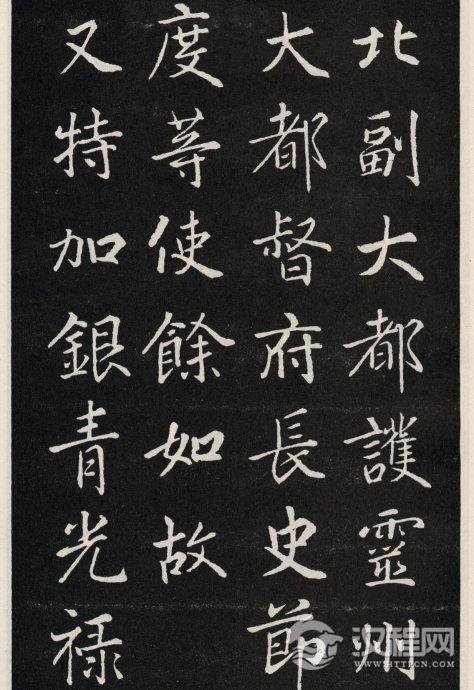 北副大都護靈州
大都督府長史節
度等使餘如故
又特加銀青光禄
汉程网
WWW.HTTPCN.COM